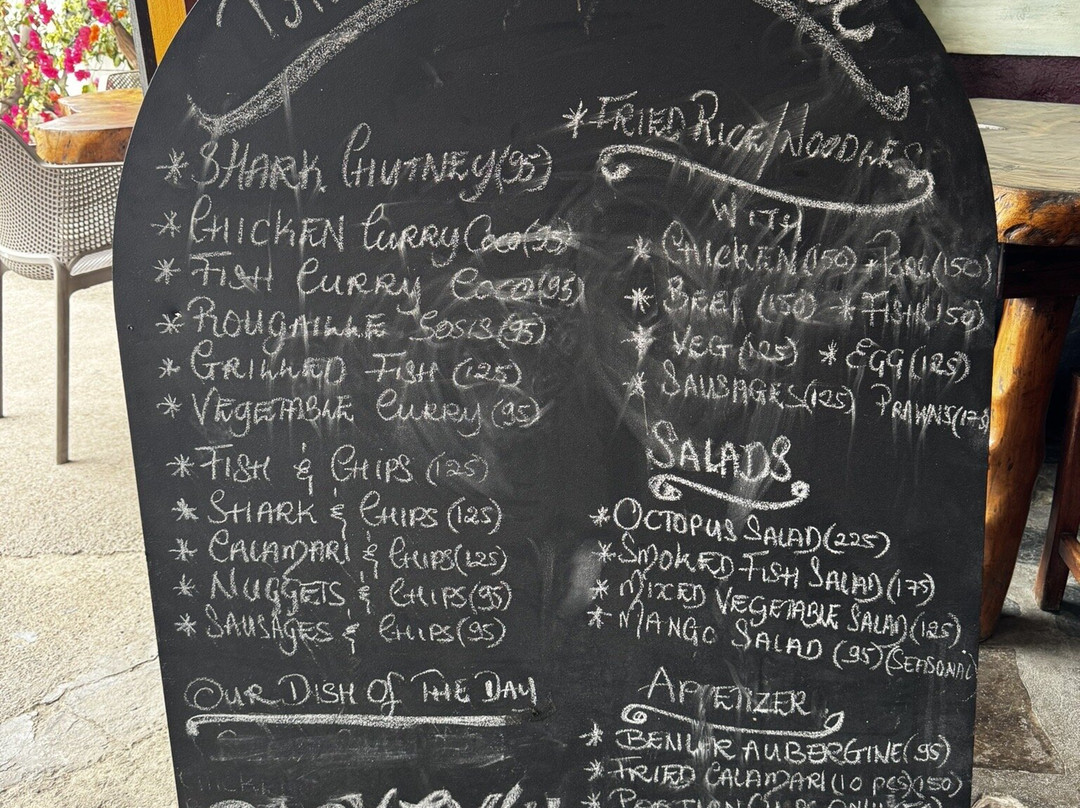 * SHARK CHUTNEY (95)
* CHICKEN CURRY COCO (95)
* FISH CURRY COCO (95)
* ROUGAILLE SOSIS (95)
* GRILLED FISH (125)
* VEGETABLE CURRY (95)
* FISH & CHIPS (125)
* SHARK & CHIPS (125)
* CALAMARI & CHIPS (125)
* NUGGETS & CHIPS (95)
* SAUSAGES & CHIPS (95)
OUR DISH OF THE DAY
* FRIED RICE/NOODLES
WITH
* CHICKEN (150) * PORC (150)
* BEEF (150) * FISH (150)
* VEG (125) * EGG (125)
* SAUSAGES (125) PRAWNS (175)
SALADS
* OCTOPUS SALAD (225)
* SMOKED FISH SALAD (175)
* MIXED VEGETABLE SALAD (125)
* MANGO SALAD (95) (SEASONAL
APPETIZER
* AUBERGINE (95)
* FRIED CALAMARI (10 PCS) (150)